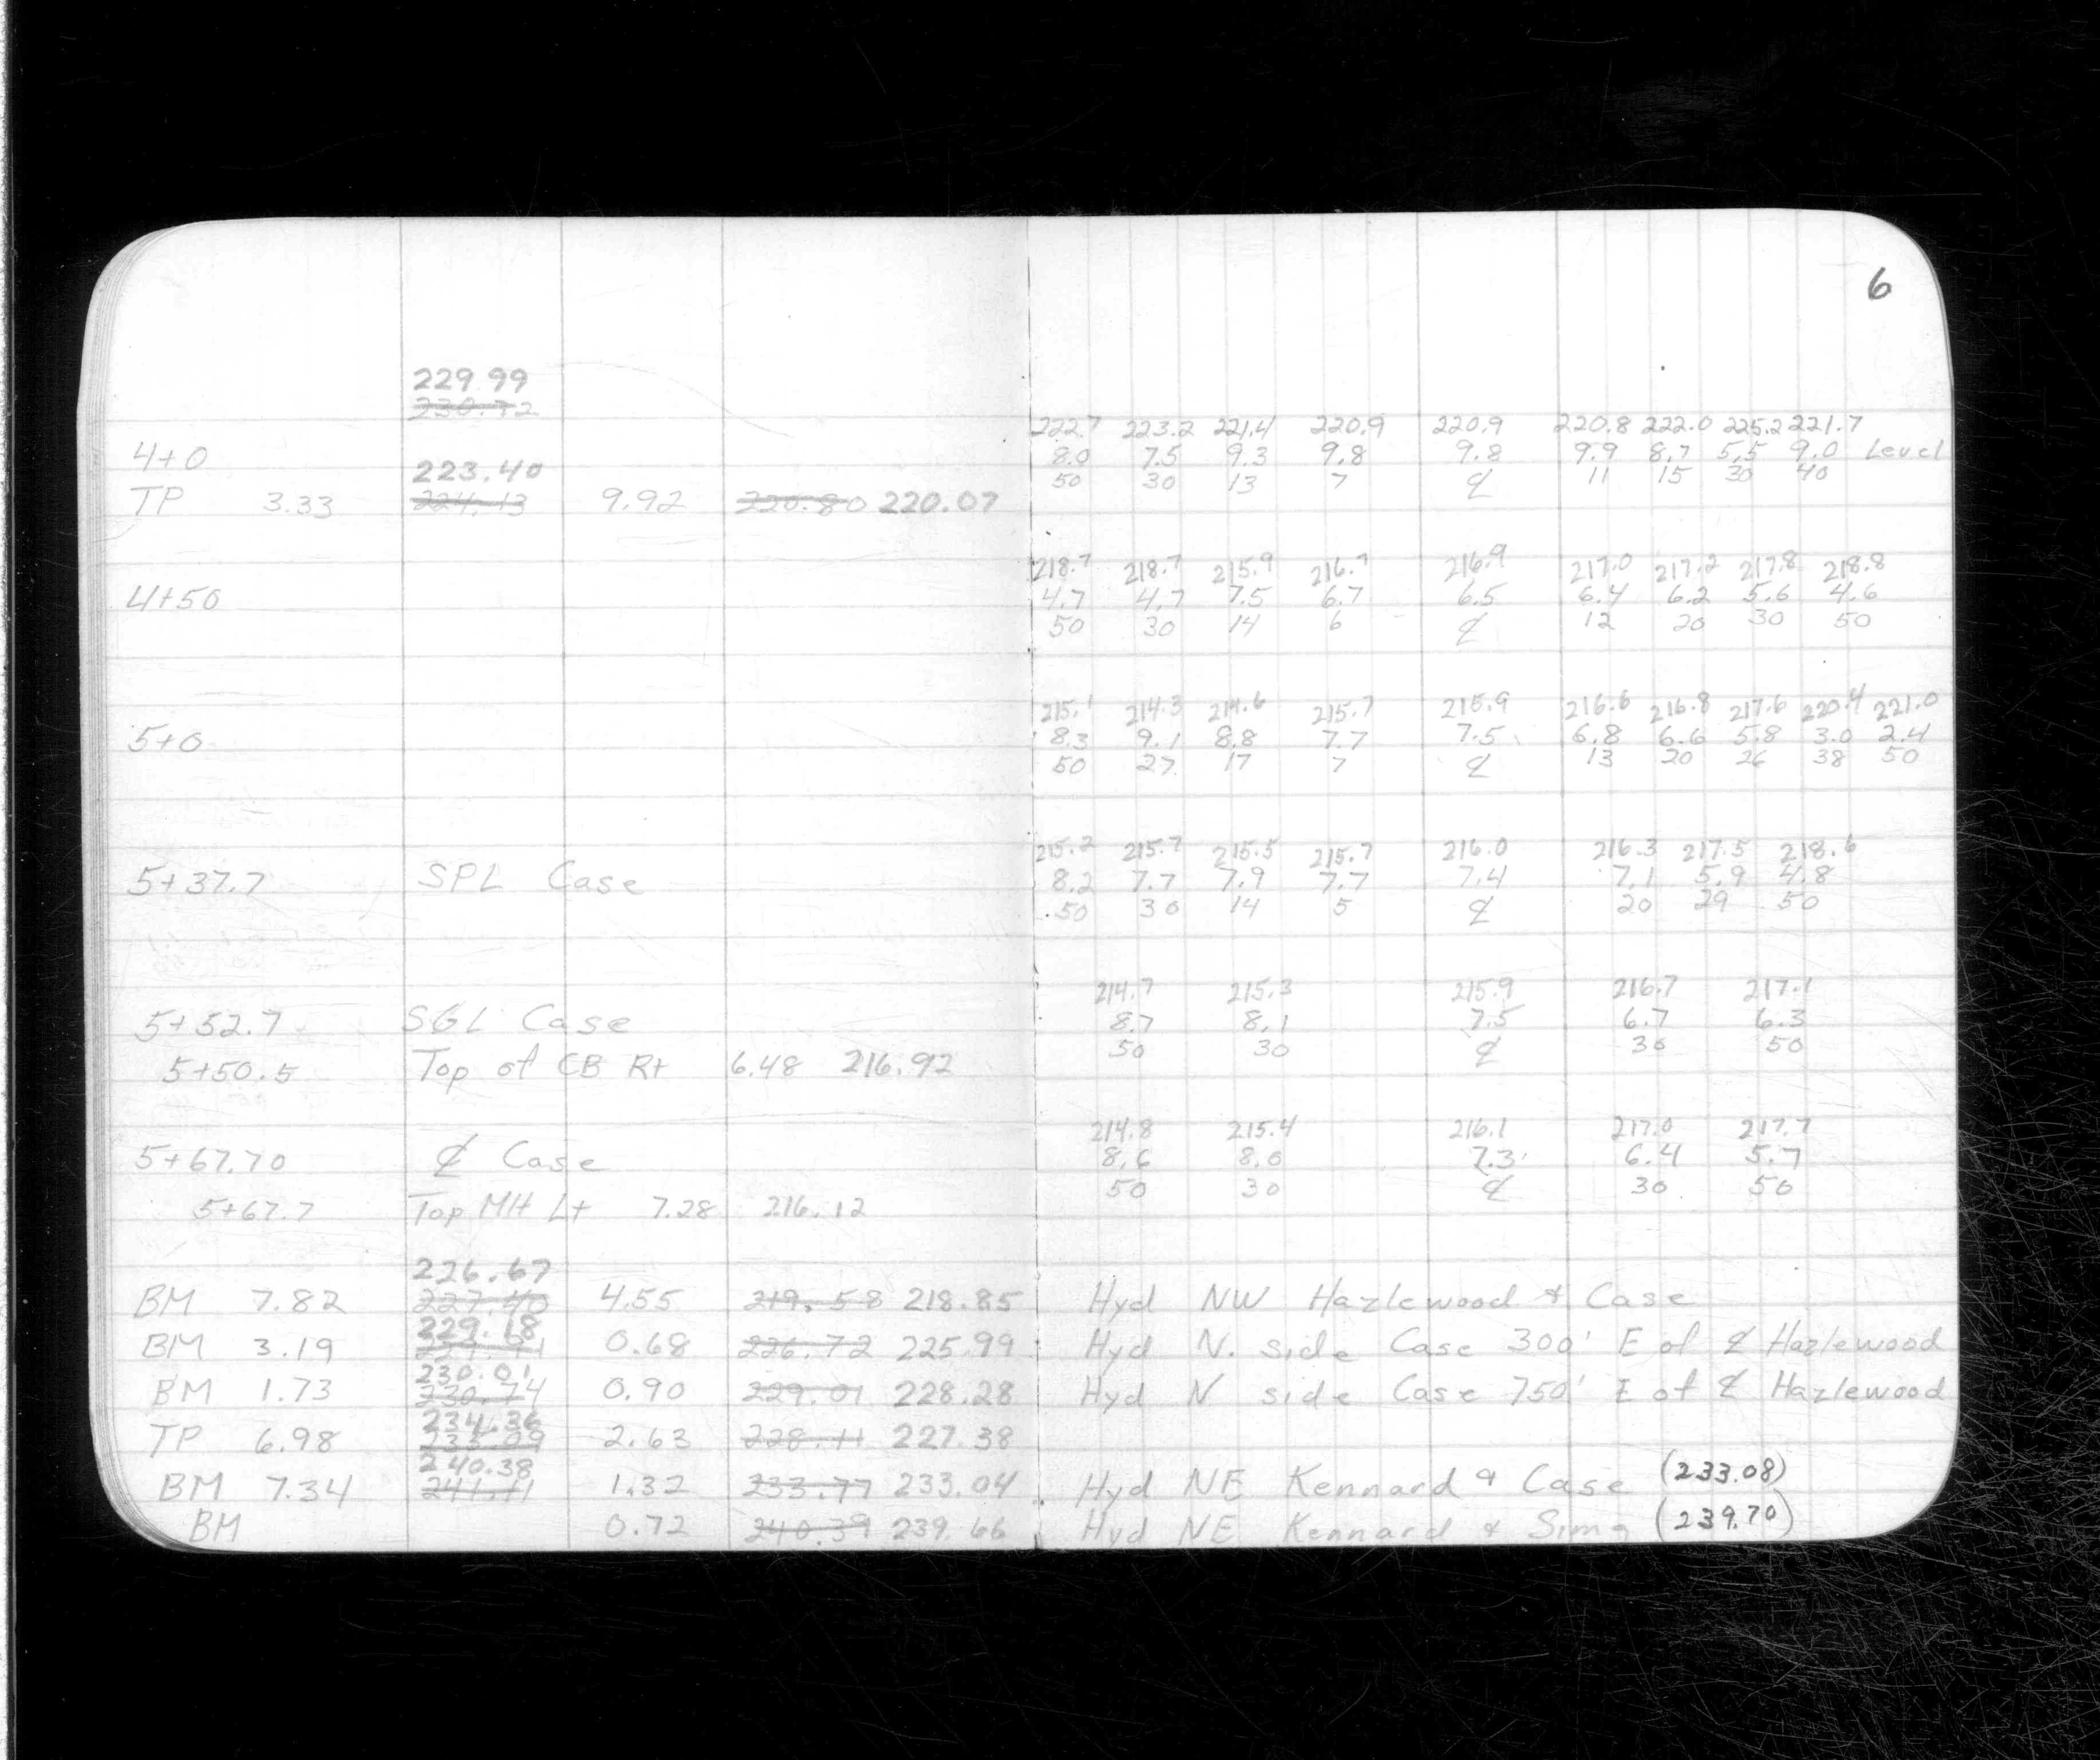 6
229.99
230.72
222.7 223.2 221.4 220.9 220.9 220.8 222.0 225.2 221.7
4+0 8.0 7.5 9.3 9.8 9.8 9.9 8.7 5.5 9.0 Level
223.40 50 30 13 7 ℄ 11 15 30 40
TP 3.33 224.13 9.92 220.80 220.07
218.7 218.7 215.9 216.7 216.9 217.0 217.2 217.8 218.8
4+50 4.7 4.7 7.5 6.7 6.5 6.4 6.2 5.6 4.6
50 30 14 6 ℄ 12 20 30 50
215.1 214.3 214.6 215.7 215.9 216.6 216.8 217.6 220.4 221.0
5+0 8.3 9.1 8.8 7.7 7.5 6.8 6.6 5.8 3.0 2.4
50 27 17 7 ℄ 13 20 26 38 50
215.2 215.7 215.5 215.7 216.0 216.3 217.5 218.6
5+37.7 SPL Case 8.2 7.7 7.9 7.7 7.4 7.1 5.9 4.8
50 30 14 5 ℄ 20 29 50
214.7 215.3 215.9 216.7 217.1
5+52.7 SGL Case 8.7 8.1 7.5 6.7 6.3
50 30 ℄ 30 50
5+50.5 Top of CB Rt 6.48 216.92
214.8 215.4 216.1 217.0 217.7
5+67.70 ℄ Case 8.6 8.0 7.3 6.4 5.7
50 30 ℄ 30 50
5+67.7 Top MH Lt 7.28 216.12
226.67
BM 7.82 227.40 4.55 219.58 218.85 Hyd NW Hazlewood & Case
229.18
BM 3.19 0.68 226.72 225.99 Hyd N. side Case 300' E of ℄ Hazlewood
230.01
BM 1.73 230.74 0.90 229.01 228.28 Hyd N side Case 750' E of ℄ Hazlewood
234.36
TP 6.98 2.63 228.11 227.38
240.38
BM 7.34 241.11 1.32 233.77 233.04 Hyd NE Kennard & Case (233.08)
BM 0.72 240.39 239.66 Hyd NE Kennard & Sims (239.70)